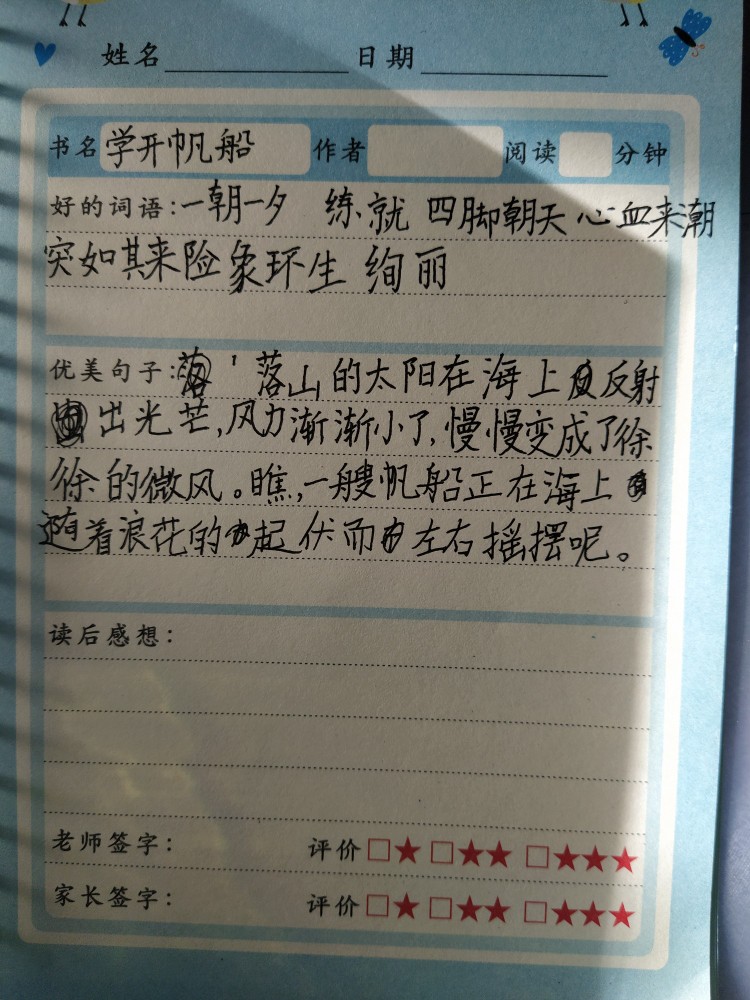 姓名 日期
书名 学开帆船 作者 阅读 分钟
好的词语:一朝一夕 练就 四脚朝天 心血来潮
突如其来险象环生 绚丽
优美句子: 落山的太阳在海上反射
出光芒,风力渐渐小了,慢慢变成了徐
徐的微风。瞧,一艘帆船正在海上
随着浪花的起伏而左右摇摆呢。
读后感想:
老师签字: 评价 □★ □★★ □★★★
家长签字: 评价 □★ □★★ □★★★